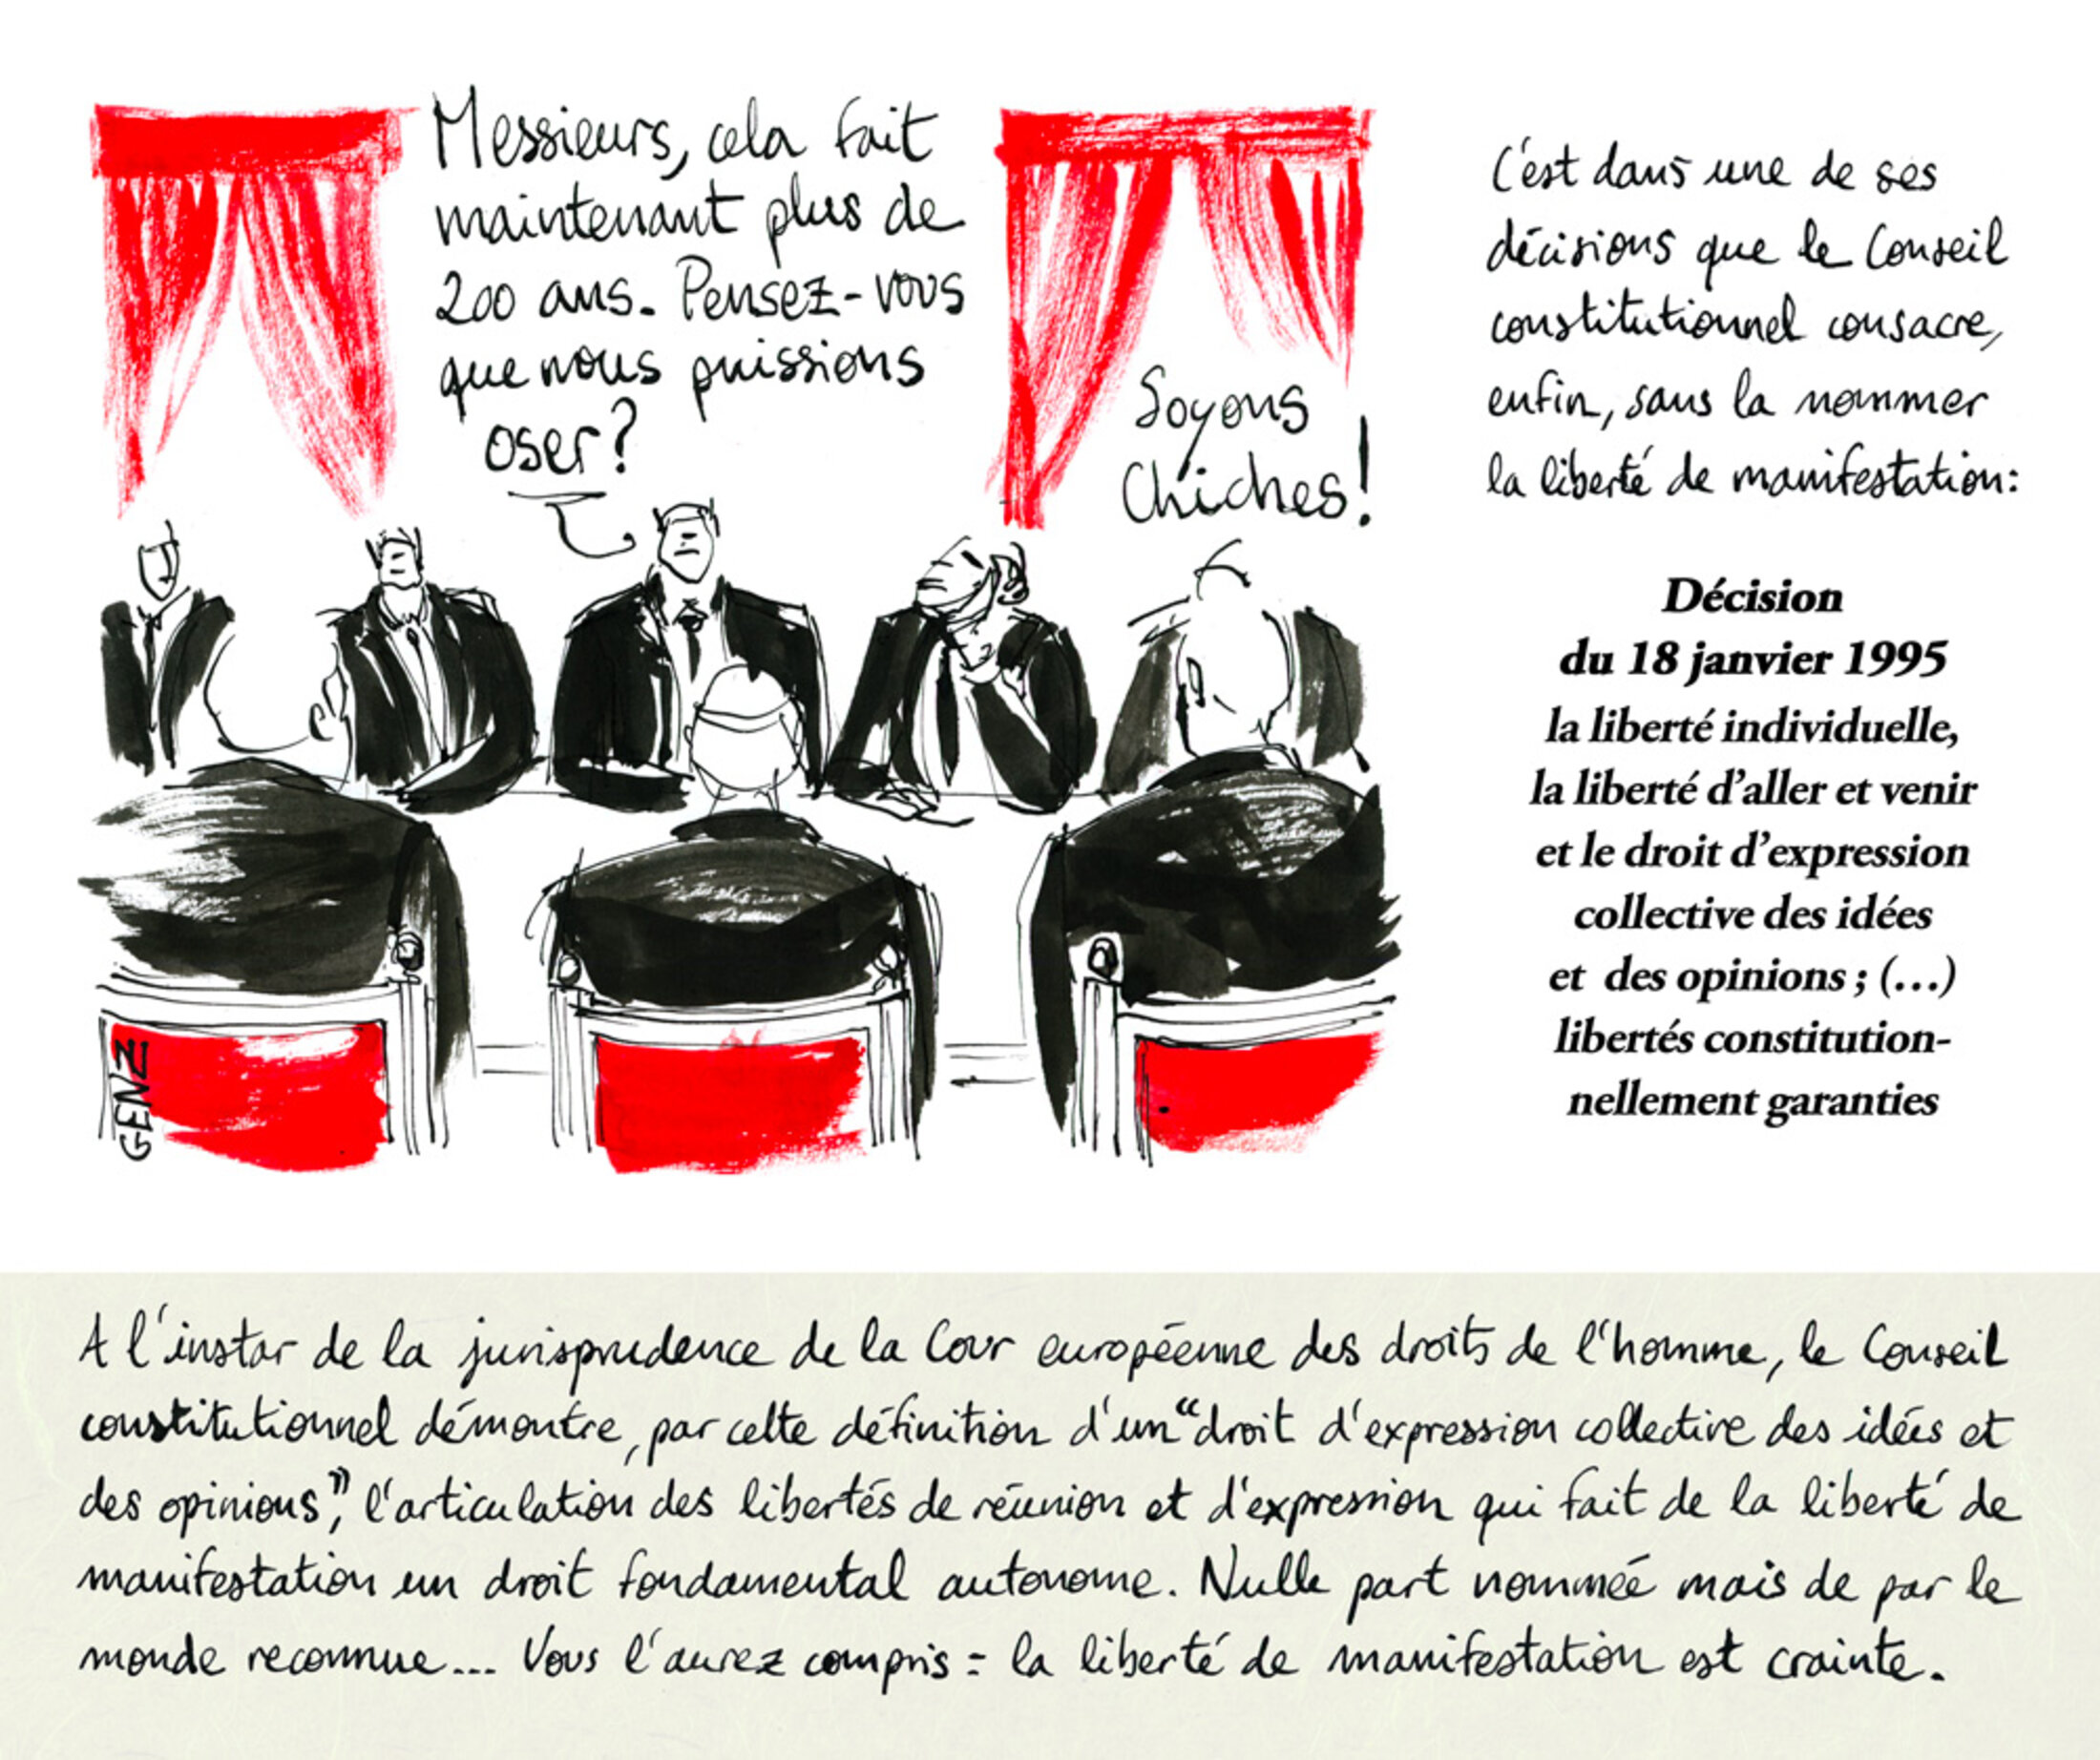 Messieurs, cela fait
maintenant plus de
200 ans. Pensez-vous
que nous puissions
oser?
Soyons
Chiches!
GENZ
C'est dans une de ses
décisions que le Conseil
constitutionnel consacre,
enfin, sans la nommer
la liberté de manifestation:
Décision
du 18 janvier 1995
la liberté individuelle,
la liberté d'aller et venir
et le droit d'expression
collective des idées
et des opinions ; (...)
libertés constitution-
nellement garanties
A l'instar de la jurisprudence de la Cour européenne des droits de l'homme, le Conseil
constitutionnel démontre, par cette définition d'un "droit d'expression collective des idées et
des opinions", l'articulation des libertés de réunion et d'expression qui fait de la liberté de
manifestation un droit fondamental autonome. Nulle part nommée mais de par le
monde reconnue... Vous l'aurez compris : la liberté de manifestation est crainte.